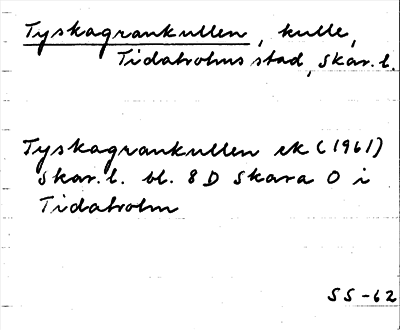 Tyskagrankullen, kulle,
Tidaholms stad, Skar. l.
Tyskagrankullen ek (1961)
Skar. l. bl. 8 D Skara O i
Tidaholm
SS-62